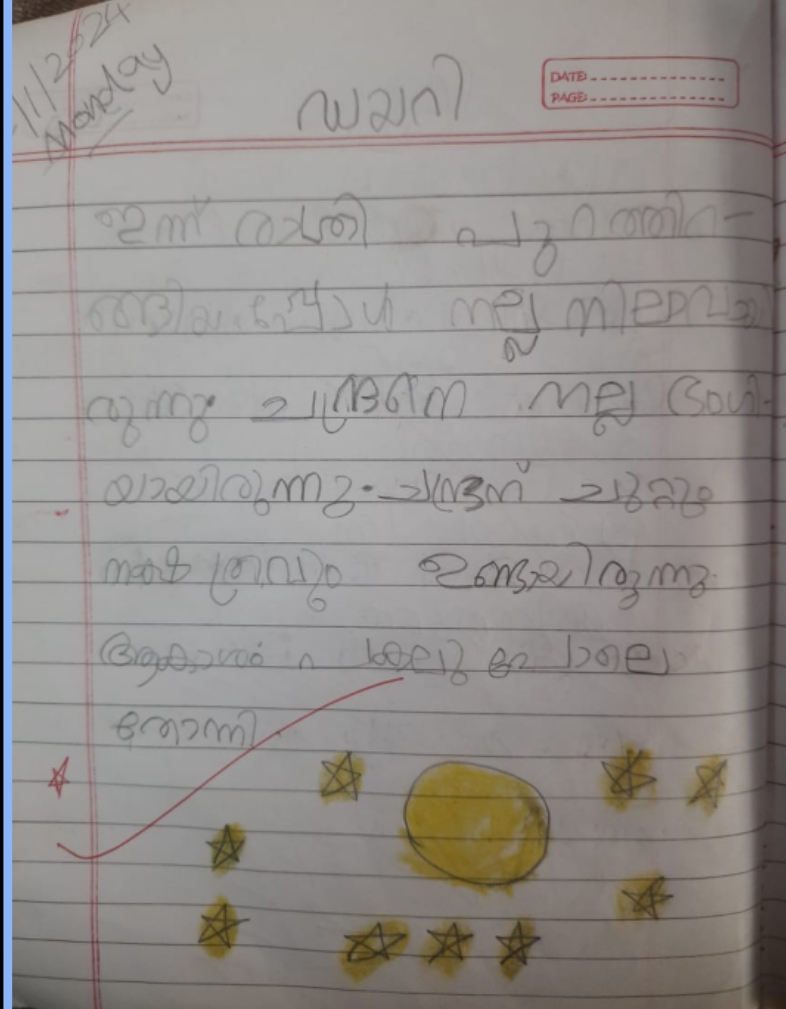 /1/2024
Monday
ഡയറി
DATE
PAGE
ഇന്ന് രാത്രി പുറത്തിറ-
ങ്ങിയപ്പോൾ നല്ല നിലാവാ
രുന്നു ചന്ദ്രനെ നല്ല ഭംഗി-
യായിരുന്നു. ചന്ദ്രന് ചുറ്റും
നക്ഷത്രവും ഉണ്ടായിരുന്നു.
ആകാശം പകലു പോലെ
തോന്നി.